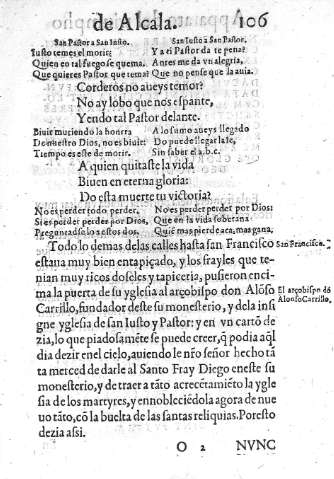 de Alcala. 106
San Pastor a San Iusto. San Iusto a San Pastor.
Iusto temes el morir? Y a ti Pastor da te pena?
Quien en tal fuego se quema. Antes me da vn alegria,
Que quieres Pastor que tema? Que no pense que la auia.
Corderos no aueys temor?
No ay lobo que nos espante,
Yendo tal Pastor delante.
Biuir muriendo la honrra A lo sumo aueys llegado
De nuestro Dios, no es biuir: Do puede llegar la fe,
Tiempo es este de morir. Sin saber el a.b.c.
A quien quitaste la vida
Biuen en eterna gloria:
Do esta muerte tu victoria?
No es perder todo perder, No es perder perder por Dios:
Si es perder perder por Dios, Que en la vida soberana
Preguntadselo a estos dos. Quié mas pierde aca, mas gana,
Todo lo demas delas calles hasta san Francisco San Francisco.
estaua muy bien entapiçado, y los frayles que te-
nian muy ricos doseles y tapiceria, pusieron enci-
ma la puerta de su yglesia al arçobispo don Alõso El arçobispo dõ
Carrillo, fundador deste su monesterio, y dela insi Alonso Carrillo.
gne yglesia de san Iusto y Pastor: y en vn cartõ de
zia, lo que piadosamẽte se puede creer, q̃ podia aql̃
dia dezir en el cielo, auiendo le nr̃o señor hecho tã
ta merced de darle al Santo Fray Diego en este su
monesterio, y de traer a tãto acrecẽtamiẽto la ygle
sia de los martyres, y ennobleciédola agora de nue
uo tãto, cõ la buelta de las santas reliquias. Por esto
dezia assi.
O 2 NVNC